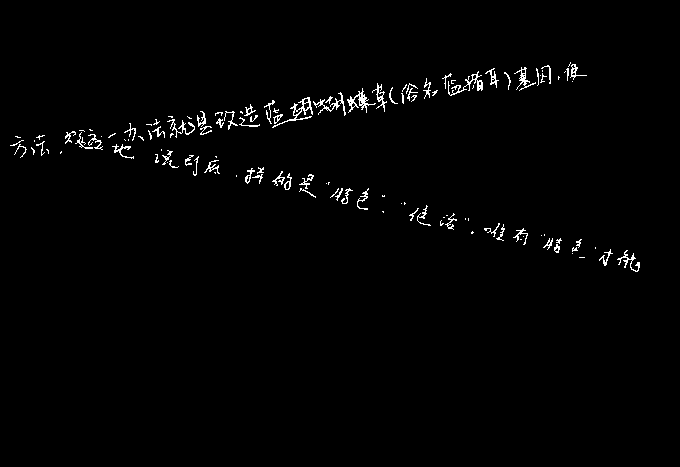 方法。唯一办法就是改造蓝翅蝴蝶草(俗名蓝猪耳)基因,使
地 说到底,拼的是“特色”、“传活”,唯有“特色”才能